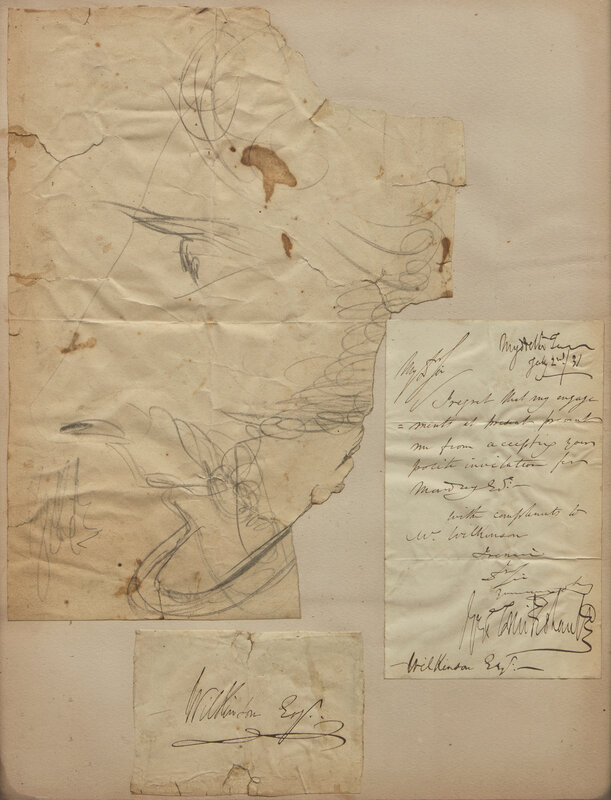 My Dr Sir
July 2nd/31
I regret that my engage
= ments at present prevent
me from accepting your
polite invitation for
Monday
with compliments to
Mr. Wilkinson
I remain
Dr Sir
Wilkinson Esqr.
Wilkinson Esqr.